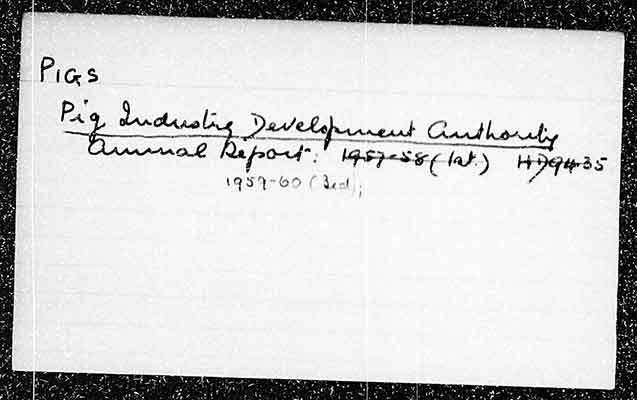 PIGS
Pig Industry Development Authority
Annual Report: 1957-58 (1st.) HD9435
1959-60 (3rd);